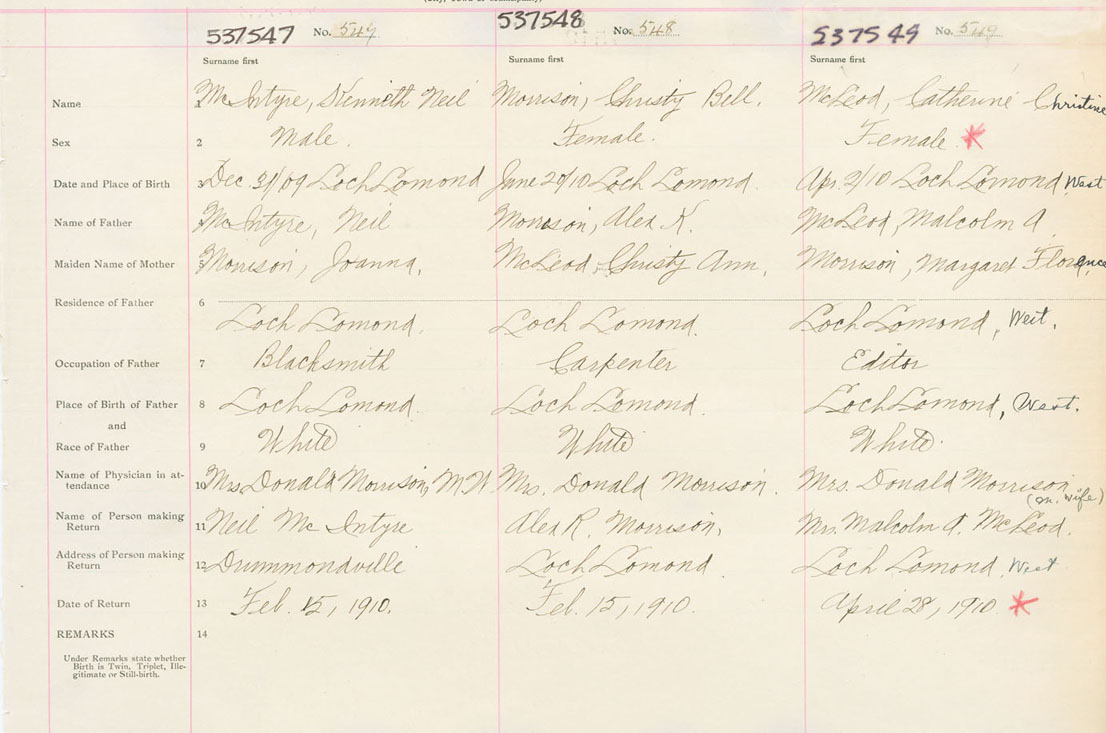 537547 No. 547 537548 No. 548 537549 No. 549
Surname first Surname first Surname first
Name 1 McIntyre, Kenneth Neil Morrison, Christy Bell. McLeod, Catherine Christine
Sex 2 Male. Female. Female.
Date and Place of Birth 3 Dec. 31/09 Loch Lomond June Loch Lomond. Apr. 2/10 Loch Lomond West
Name of Father 4 McIntyre, Neil Morrison, Alex R. McLeod, Malcolm A
Maiden Name of Mother 5 Morrison, Joanna, McLeod, Christy Ann, Morrison, Margaret Florence
Residence of Father 6
Loch Lomond. Loch Lomond Loch Lomond, West.
Occupation of Father 7 Blacksmith Carpenter Editor
Place of Birth of Father 8 Loch Lomond. Loch Lomond. Loch Lomond, West.
and
Race of Father 9 White White White
Name of Physician in at-
tendance 10 Mrs Donald Morrison, M.W. Mrs. Donald Morrison. Mrs. Donald Morrison
(m. wife)
Name of Person making
Return 11 Neil McIntyre Alex R. Morrison, Mrs. Malcolm A. McLeod.
Address of Person making
Return 12 Drummondville Loch Lomond Loch Lomond West
Date of Return 13 Feb. 15, 1910. Feb. 15, 1910. April 28, 1910.
REMARKS 14
Under Remarks state whether
Birth is Twin, Triplet, Ille-
gitimate or Still-birth.